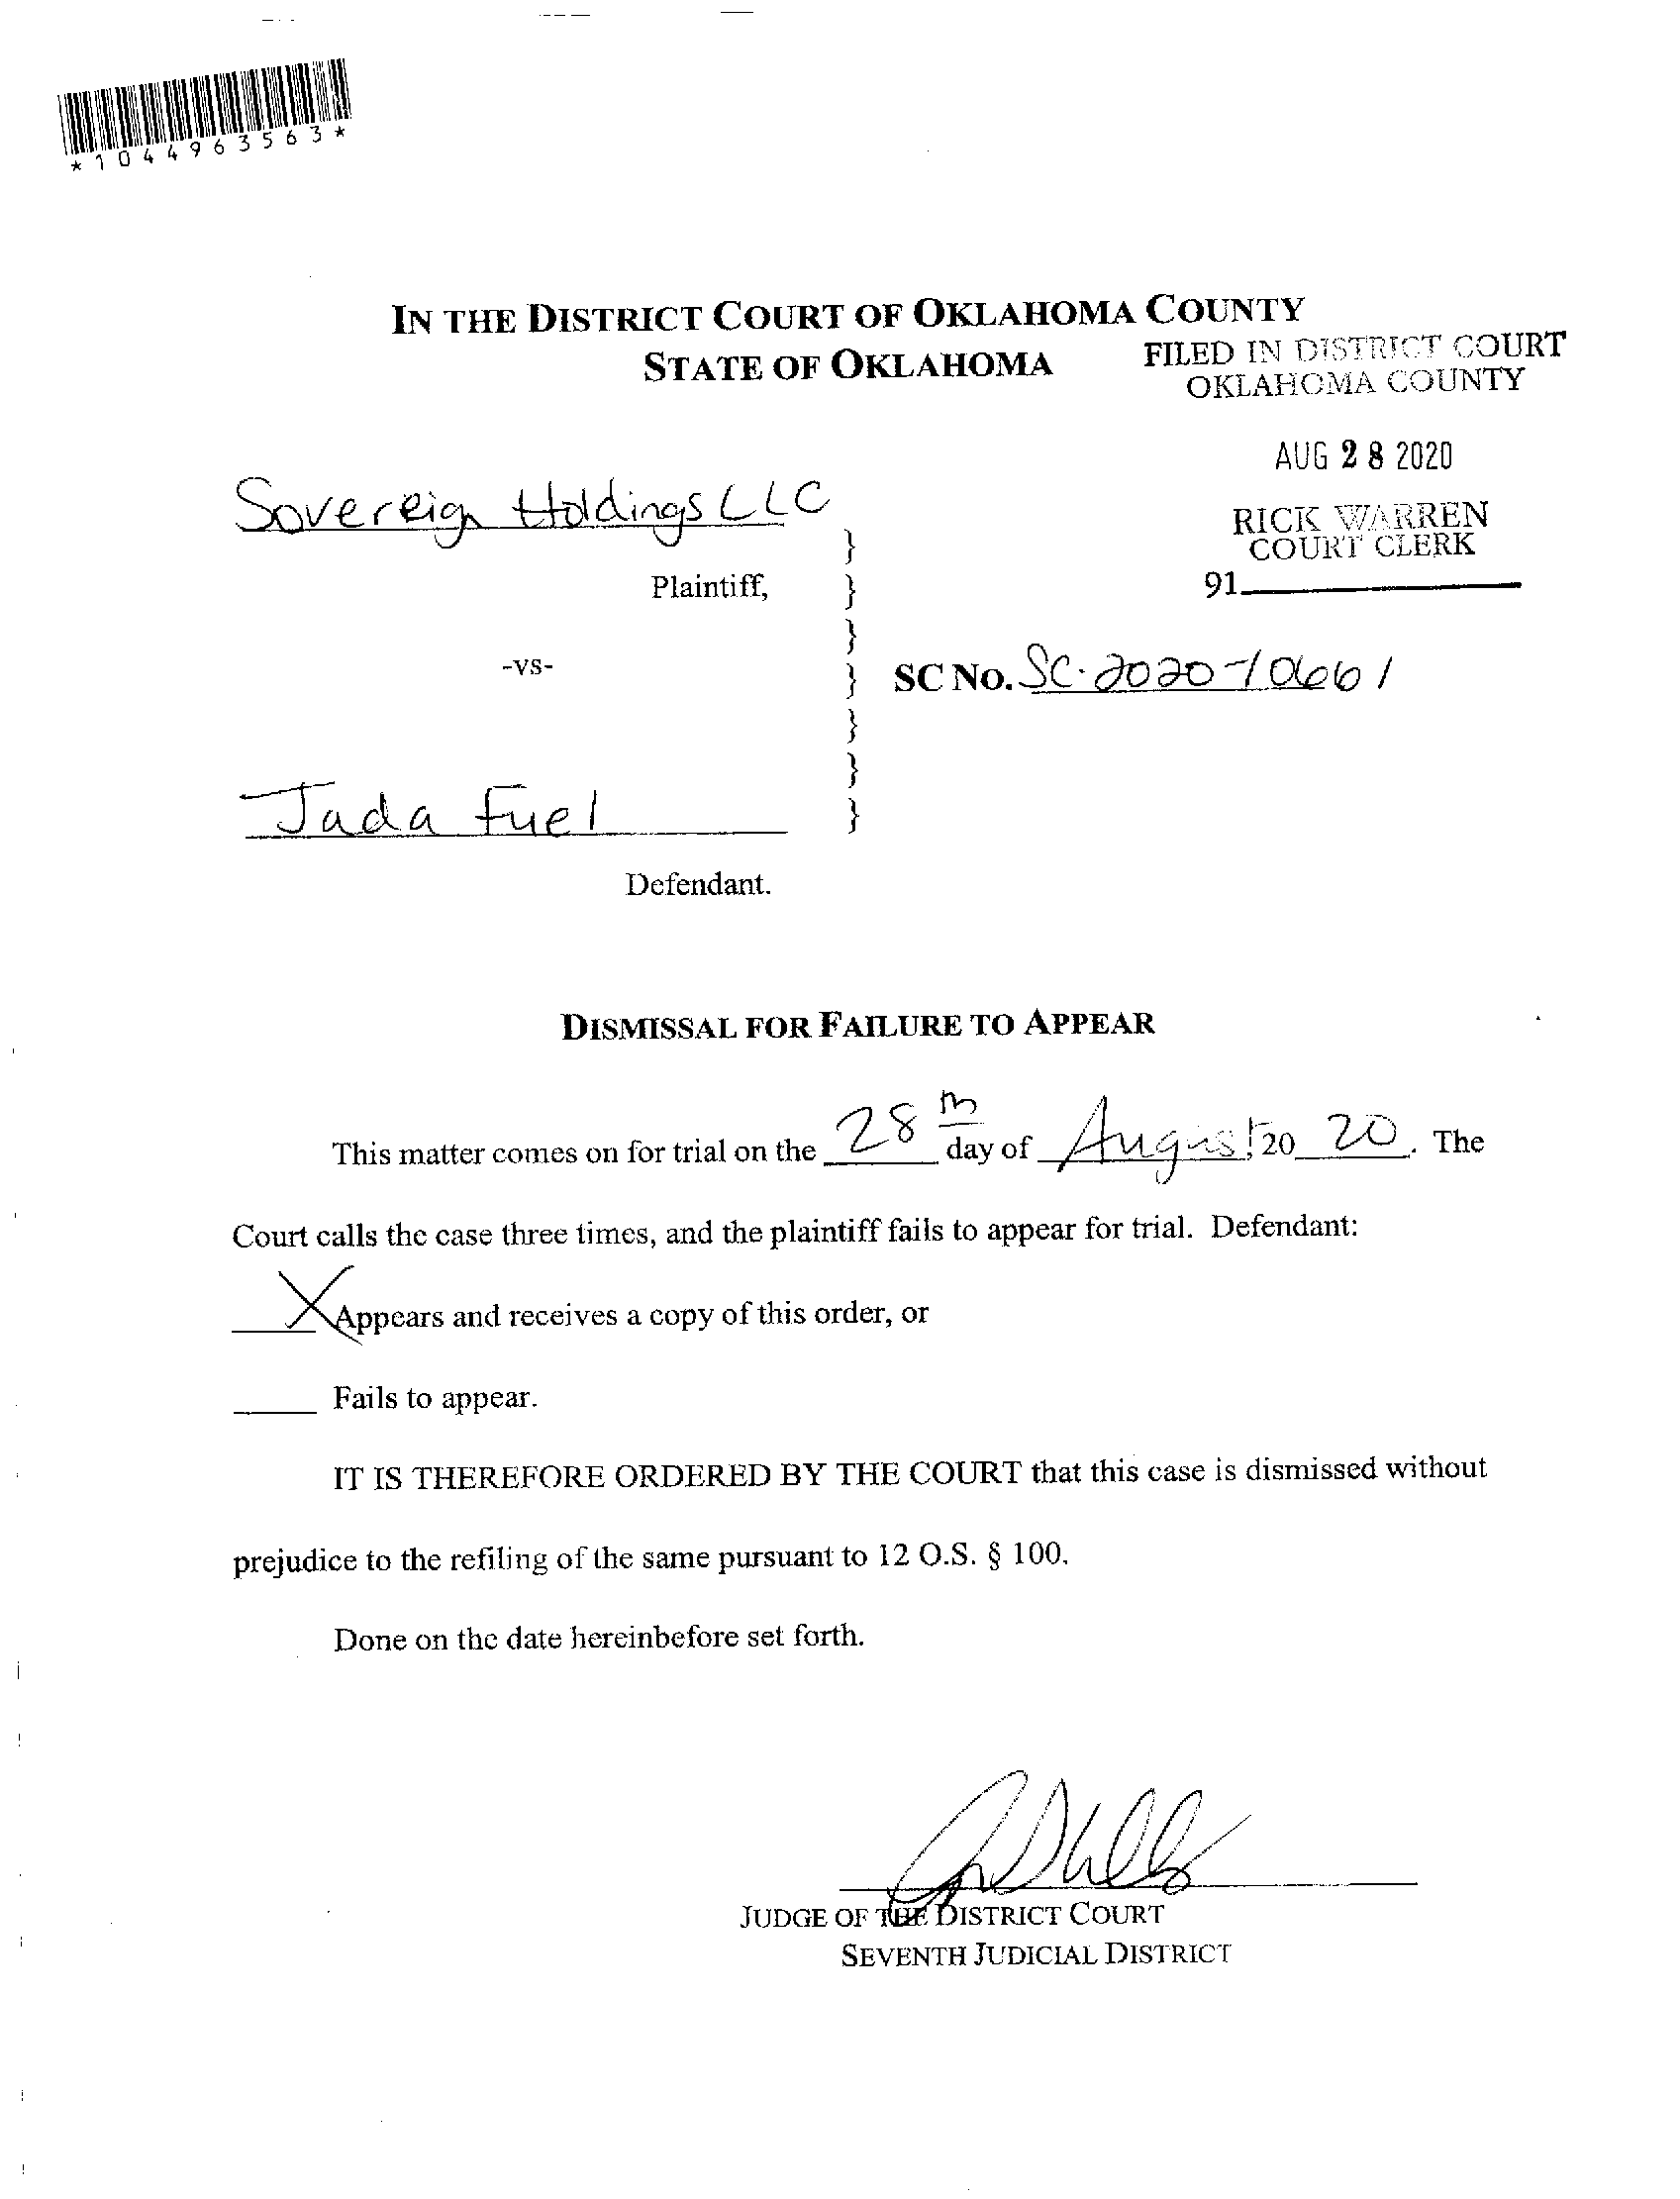 *1044963563*
IN THE DISTRICT COURT OF OKLAHOMA COUNTY
STATE OF OKLAHOMA
FILED IN DISTRICT COURT
OKLAHOMA COUNTY
AUG 28 2020
RICK WARREN
COURT CLERK
91
Sovereign Holdings LLC
}
Plaintiff, }
}
-vs- } SC NO. SC-2020-10661
}
}
Jada Fuel }
Defendant.
DISMISSAL FOR FAILURE TO APPEAR
This matter comes on for trial on the 28th day of August, 20 20. The
Court calls the case three times, and the plaintiff fails to appear for trial. Defendant:
X Appears and receives a copy of this order, or
Fails to appear.
IT IS THEREFORE ORDERED BY THE COURT that this case is dismissed without
prejudice to the refiling of the same pursuant to 12 O.S. § 100.
Done on the date hereinbefore set forth.
JUDGE OF THE DISTRICT COURT
SEVENTH JUDICIAL DISTRICT